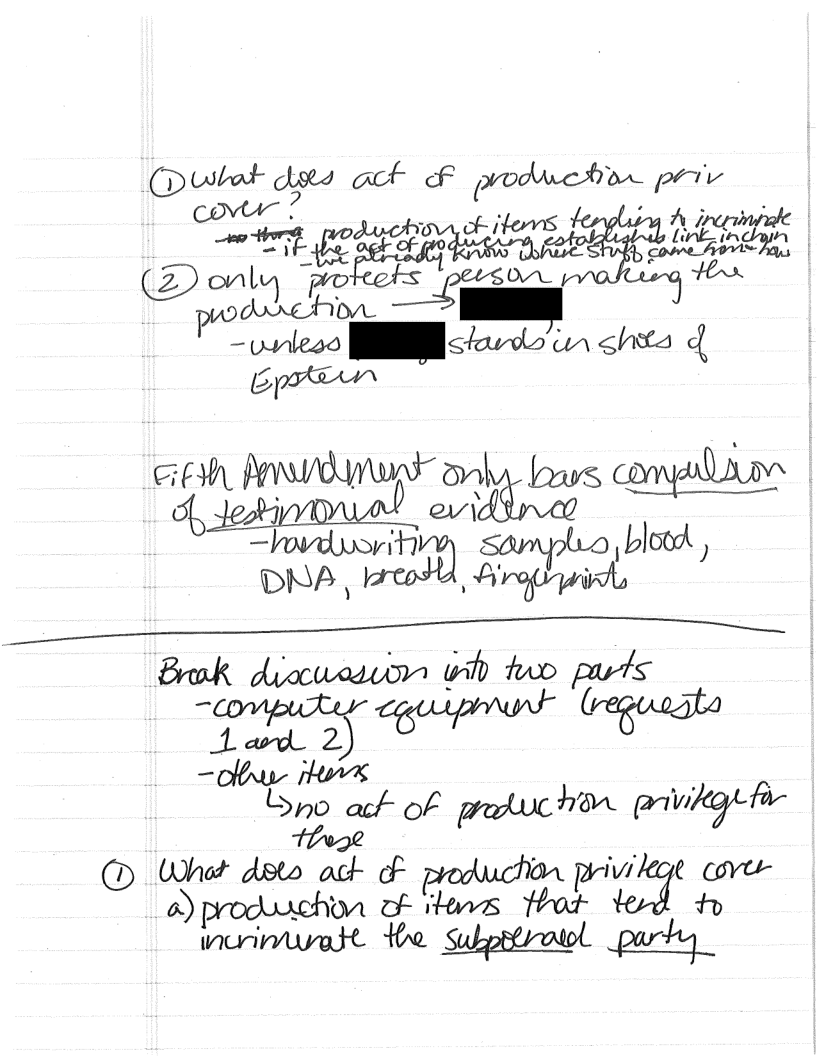 ① What does act of production priv
cover?
- production of items tending to incriminate
- if the act of producing establishes link in chain
- we already know where stuff came from - how
② only protects person making the
production →
- unless stands in shoes of
Epstein
Fifth Amendment only bars compulsion
of testimonial evidence
- handwriting samples, blood,
DNA, breath, fingerprints
Break discussion into two parts
- computer equipment (requests
1 and 2)
- other items
↳ no act of production privilege for
these
① What does act of production privilege cover
a) production of items that tend to
incriminate the subpoenaed party